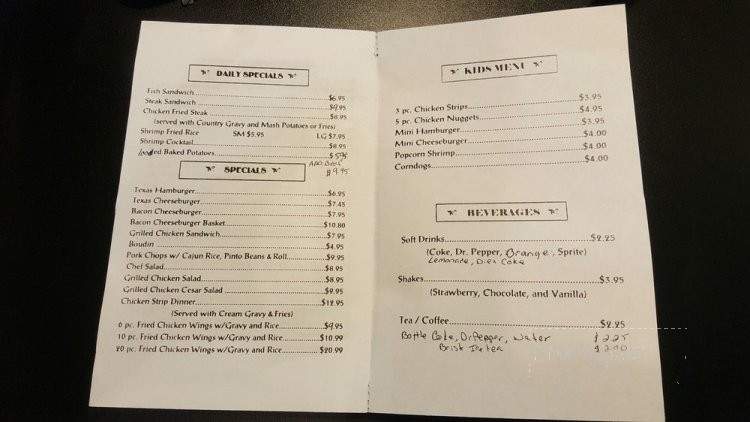 DAILY SPECIALS
Fish Sandwich $6.95
Steak Sandwich $9.95
Chicken Fried Steak $8.95
(served with Country Gravy and Mash Potatoes or Fries)
Shrimp Fried Rice SM $5.95 LG $7.95
Shrimp Cocktail $8.95
loaded Baked Potatoes $5.95
ADD Beef
$9.95
SPECIALS
Texas Hamburger $6.95
Texas Cheeseburger $7.45
Bacon Cheeseburger $7.95
Bacon Cheeseburger Basket $10.80
Grilled Chicken Sandwich $7.95
Boudin $4.95
Pork Chops w/ Cajun Rice, Pinto Beans & Roll $9.95
Chef Salad $8.95
Grilled Chicken Salad $8.95
Grilled Chicken Cesar Salad $9.95
Chicken Strip Dinner $12.95
(Served with Cream Gravy & Fries)
6 pc. Fried Chicken Wings w/Gravy and Rice $9.95
10 pc. Fried Chicken Wings w/Gravy and Rice $10.99
20 pc. Fried Chicken Wings w/Gravy and Rice $20.99
KIDS MENU
3 pc. Chicken Strips $3.95
5 pc. Chicken Nuggets $4.95
Mini Hamburger $3.95
Mini Cheeseburger $4.00
Popcorn Shrimp $4.00
Corndogs $4.00
BEVERAGES
Soft Drinks $2.25
(Coke, Dr. Pepper, Orange, Sprite)
Lemonade, Diet Coke
Shakes $3.95
(Strawberry, Chocolate, and Vanilla)
Tea / Coffee $2.25
Bottle Coke, Dr Pepper, Water $2.25
Brisk Ice tea $2.00